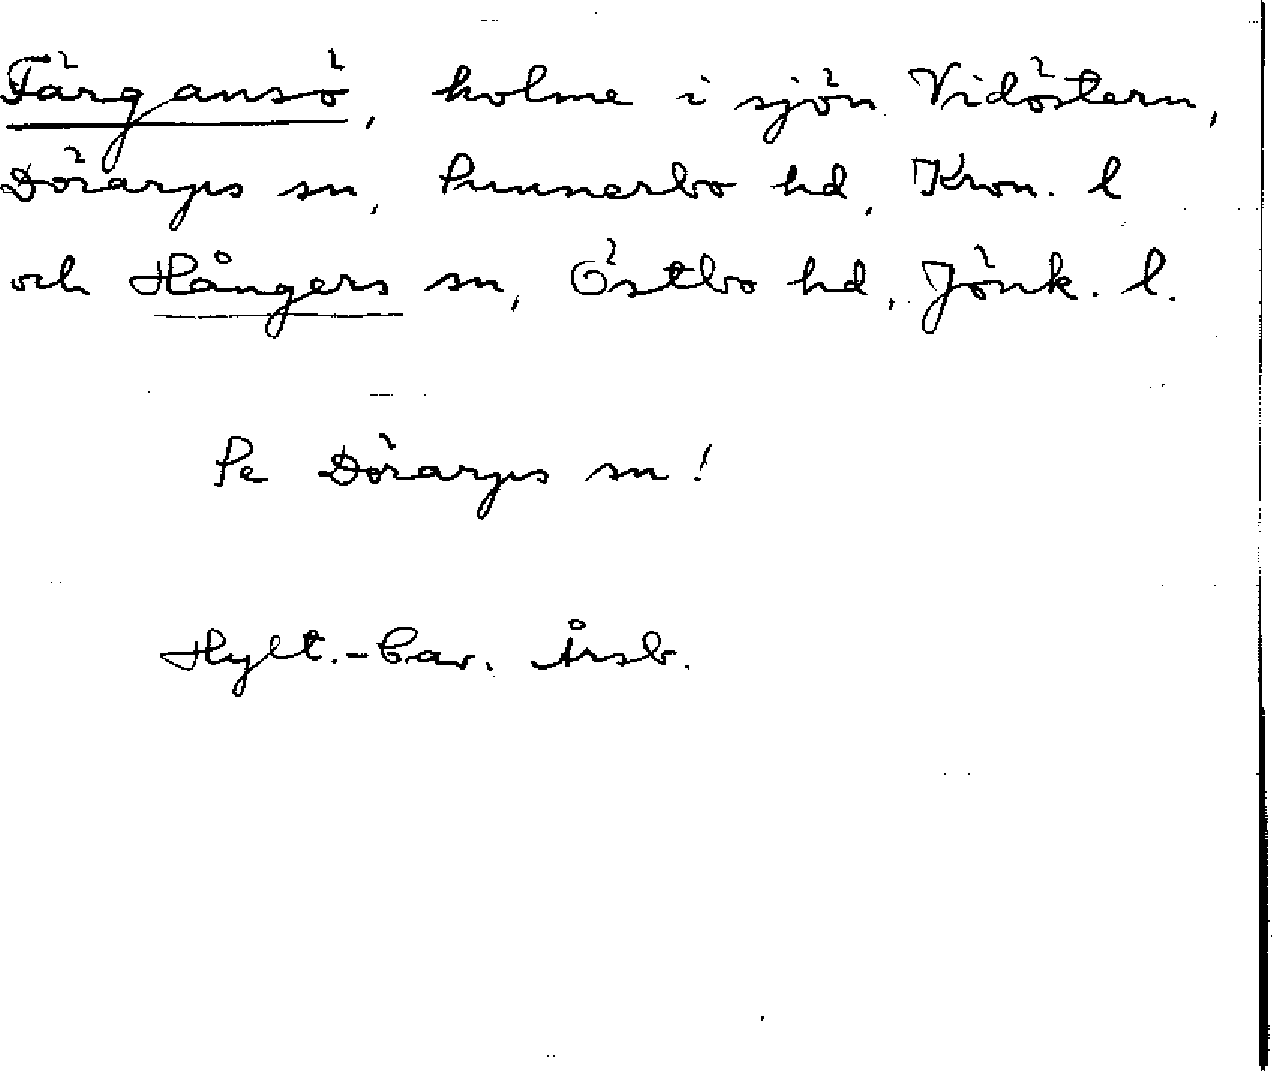 Färgansö, holme i sjön Vidöstern,
Dörarps sn, Sunnerbo hd, Kron. l
och Hångers sn, Östbo hd, Jönk. l.
Se Dörarps sn!
Hylt.-Cav. Årsb.